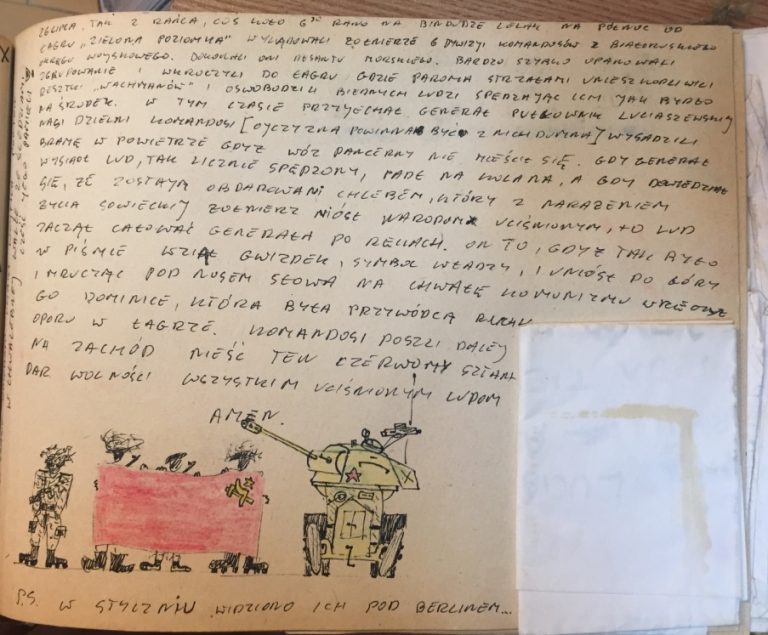 ZBLIŻA. TAK Z RAŃCA, COŚ KOŁO 6°° RANO NA BINDUDZE LELAK, NA PÓŁNOC OD
ŁAGRU "ZIELONA POZIOMKA" WYLĄDOWALI ŻOŁNIERZE 6 DYWIZJI KOMANDOSÓW Z BIAŁORUSKIEGO
OKRĘGU WOJSKOWEGO. DOKONALI ONI DESANTU MORSKIEGO. BARDZO SZYBKO OPANOWALI
ZGRUPOWANIE I WKROCZYLI DO ŁAGRU GDZIE PAROMA STRZAŁAMI UNIESZKODLIWILI
RESZTKI "WACHMANÓW" I OSWOBODZILI BIEDNYCH LUDZI SPĘDZAJĄC ICH JAK BYDŁO
NA ŚRODEK. W TYM CZASIE PRZYJECHAŁ GENERAŁ PUŁKOWNIK LUCIASZEWSKIJ
NASI DZIELNI KOMANDOSI [OJCZYZNA POWINNA BYĆ Z NICH DUMNA] WYSADZILI
BRAMĘ W POWIETRZE GDYŻ WÓZ PANCERNY NIE MIEŚCIŁ SIĘ. GDY GENERAŁ
WYSIADŁ LUD, TAK LICZNIE SPĘDZONY, PADŁ NA KOLANA, A GDY DOWIEDZIAŁ
SIĘ, ŻE ZOSTANĄ OBDAROWANI CHLEBEM, KTÓRY Z NARAŻENIEM
ŻYCIA SOWIECKIJ ŻOŁNIERZ NIÓSŁ NARODOM UCIŚNIONYM, TO LUD
ZACZĄŁ CAŁOWAĆ GENERAŁA PO RĘKACH. ON TO, GDYŻ TAK BYŁO
W PIŚMIE WZIĄŁ GWIZDEK, SYMBOL WŁADZY, I UNIÓSŁ DO GÓRY
I MRUCZĄC POD NOSEM SŁOWA NA CHWAŁĘ KOMUNIZMU WRĘCZYŁ
GO DOMINICE, KTÓRA BYŁA PRZYWÓDCĄ RUCHU
OPORU W ŁAGRZE. KOMANDOSI POSZLI DALEJ
NA ZACHÓD NIEŚĆ TEN CZERWONY SZTAN
DAR WOLNOŚCI WSZYSTKIM UCIŚNIONYM LUDOM
AMEN.
P.S. W STYCZNIU WIDZIANO ICH POD BERLINEM...